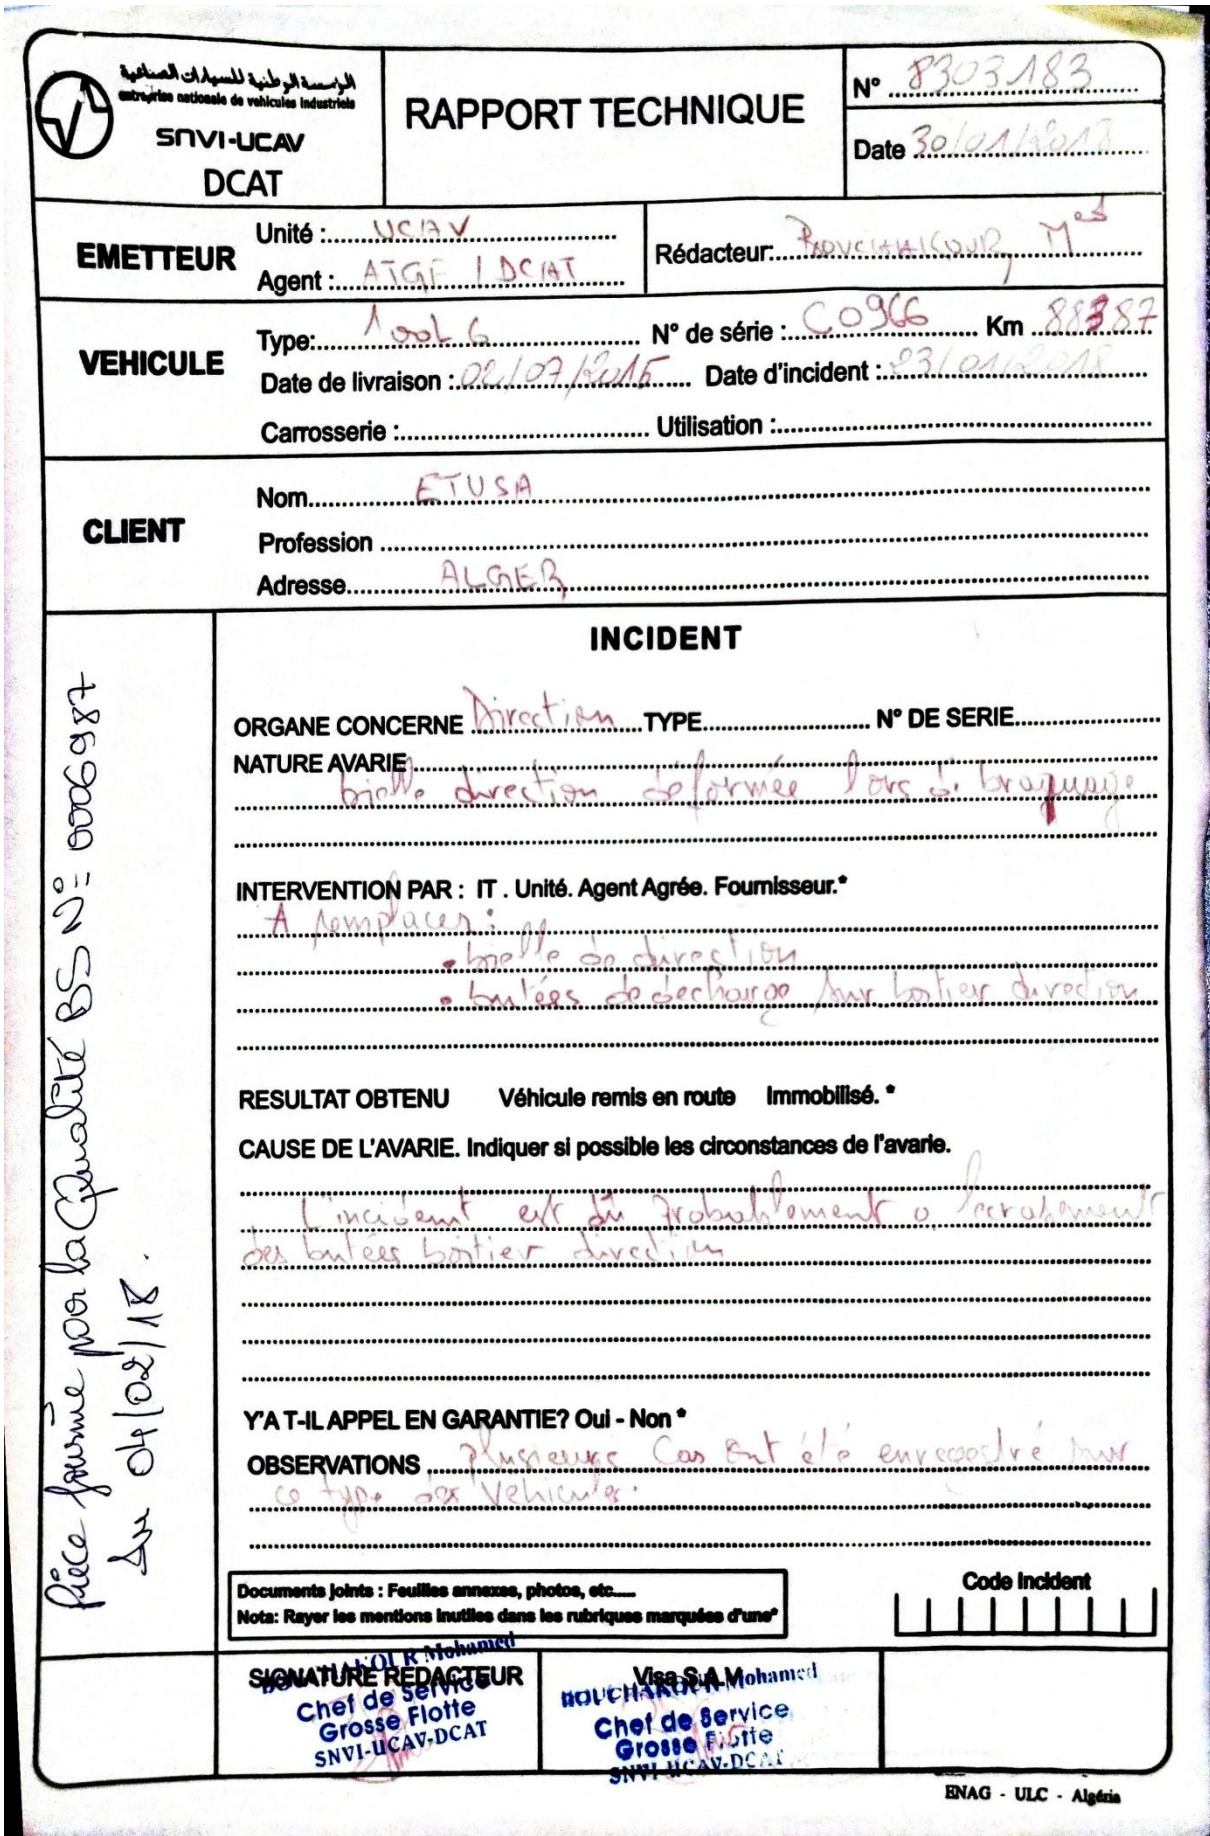 المؤسسة الوطنية للسيارات الصناعية
entreprise nationale de vehicules industriels
SNVI-UCAV
DCAT
RAPPORT TECHNIQUE
N° 8303183
Date 30/01/2018
EMETTEUR
Unité : UCAV
Agent : ATGF / DCAT
Rédacteur: BOUCHAKOUR Med
VEHICULE
Type: 100L6 N° de série : C0966 Km 88387
Date de livraison : 02/07/2015 Date d'incident : 23/01/2018
Carrosserie : Utilisation :
CLIENT
Nom ETUSA
Profession
Adresse ALGER
Pièce fournie par la Qualité BS N°= 0006987
du 04/02/18.
INCIDENT
ORGANE CONCERNE Direction TYPE N° DE SERIE
NATURE AVARIE
bielle direction déformée lors de braquage
INTERVENTION PAR : IT . Unité. Agent Agrée. Fournisseur.*
A remplacer :
• bielle de direction
• butées de decharge sur boitier direction
RESULTAT OBTENU Véhicule remis en route Immobilisé. *
CAUSE DE L'AVARIE. Indiquer si possible les circonstances de l'avarie.
L'incident est du Probablement a
des butées boitier direction
Y'A T-IL APPEL EN GARANTIE? Oui - Non *
OBSERVATIONS Plusieurs Cas ont été enregestré sur
ce type des Vehicules.
Documents joints : Feuilles annexes, photos, etc.....
Nota: Rayer les mentions inutiles dans les rubriques marquées d'une*
Code Incident
SIGNATURE REDACTEUR
BOUCHAKOUR Mohamed
Chef de Service
Grosse Flotte
SNVI-UCAV-DCAT
Visa S.A.M
BOUCHAKOUR Mohamed
Chef de Service
Grosse Flotte
SNVI-UCAV-DCAT
ENAG - ULC - Algéria